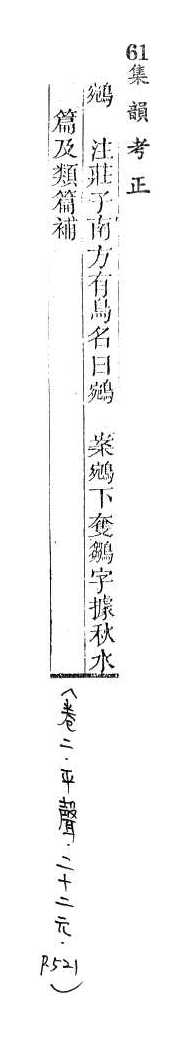 61集韻考正
鵷　注莊子南方有鳥名曰鵷　案鵷下奪鶵字據秋水
篇及類篇補
(卷二．平聲．二十二元．P.521)